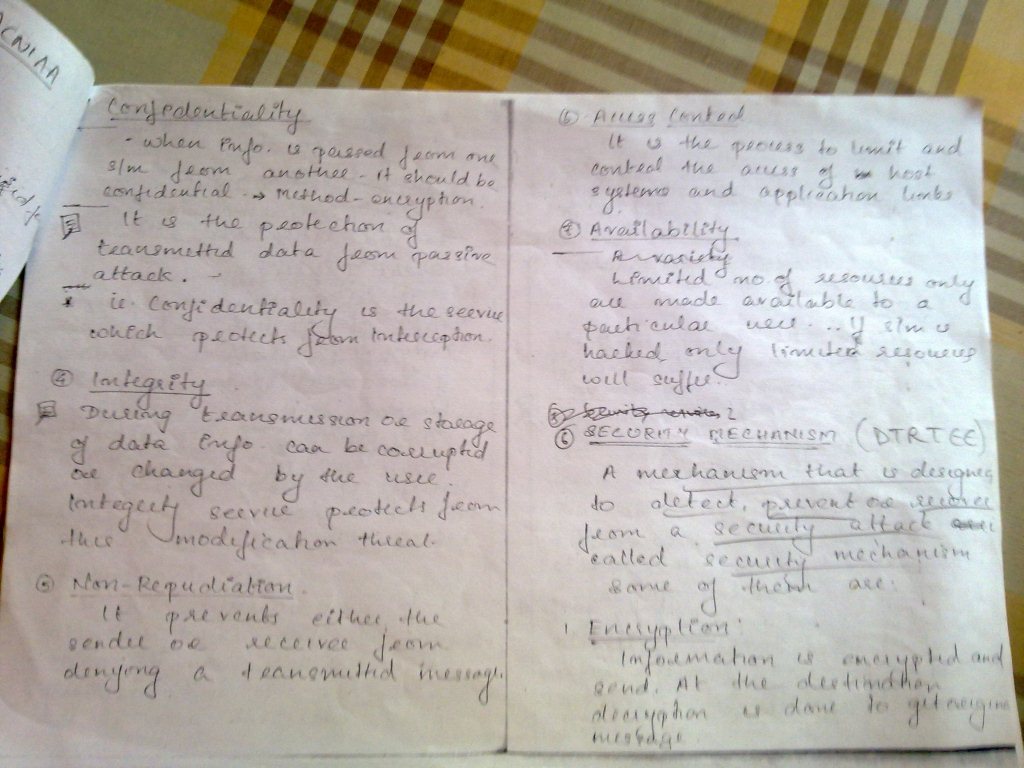 ACNIAA
Confedentiality
- when Info. is passed from one
s/m from another - it should be
confidential → Method - encryption.
It is the protection of
transmittd data from passive
attack.
* ie. Confidentiality is the service
which protects from Interception.
④ Integrity
During transmission or storage
of data Info. can be corrupted
or changed by the user.
Integrity service protects from
this modification threat.
⑤ Non-Repudiation
It prevents either the
sender or receiver from
denying a transmitted message.
⑥ Access Control
It is the process to limit and
control the access of host
systems and application links
⑦ Availability
A variety
Limited no of resources only
are made available to a
particular user... If s/m is
hacked only limited resources
will suffer.
⑧ Security services
⑥ SECURITY MECHANISM (DTRTEE)
A mechanism that is designed
to detect, prevent or recover
from a security attack
called security mechanism
some of them are:
1. Encryption:
Information is encrypted and
send. At the destination
decryption is done to get origina
message